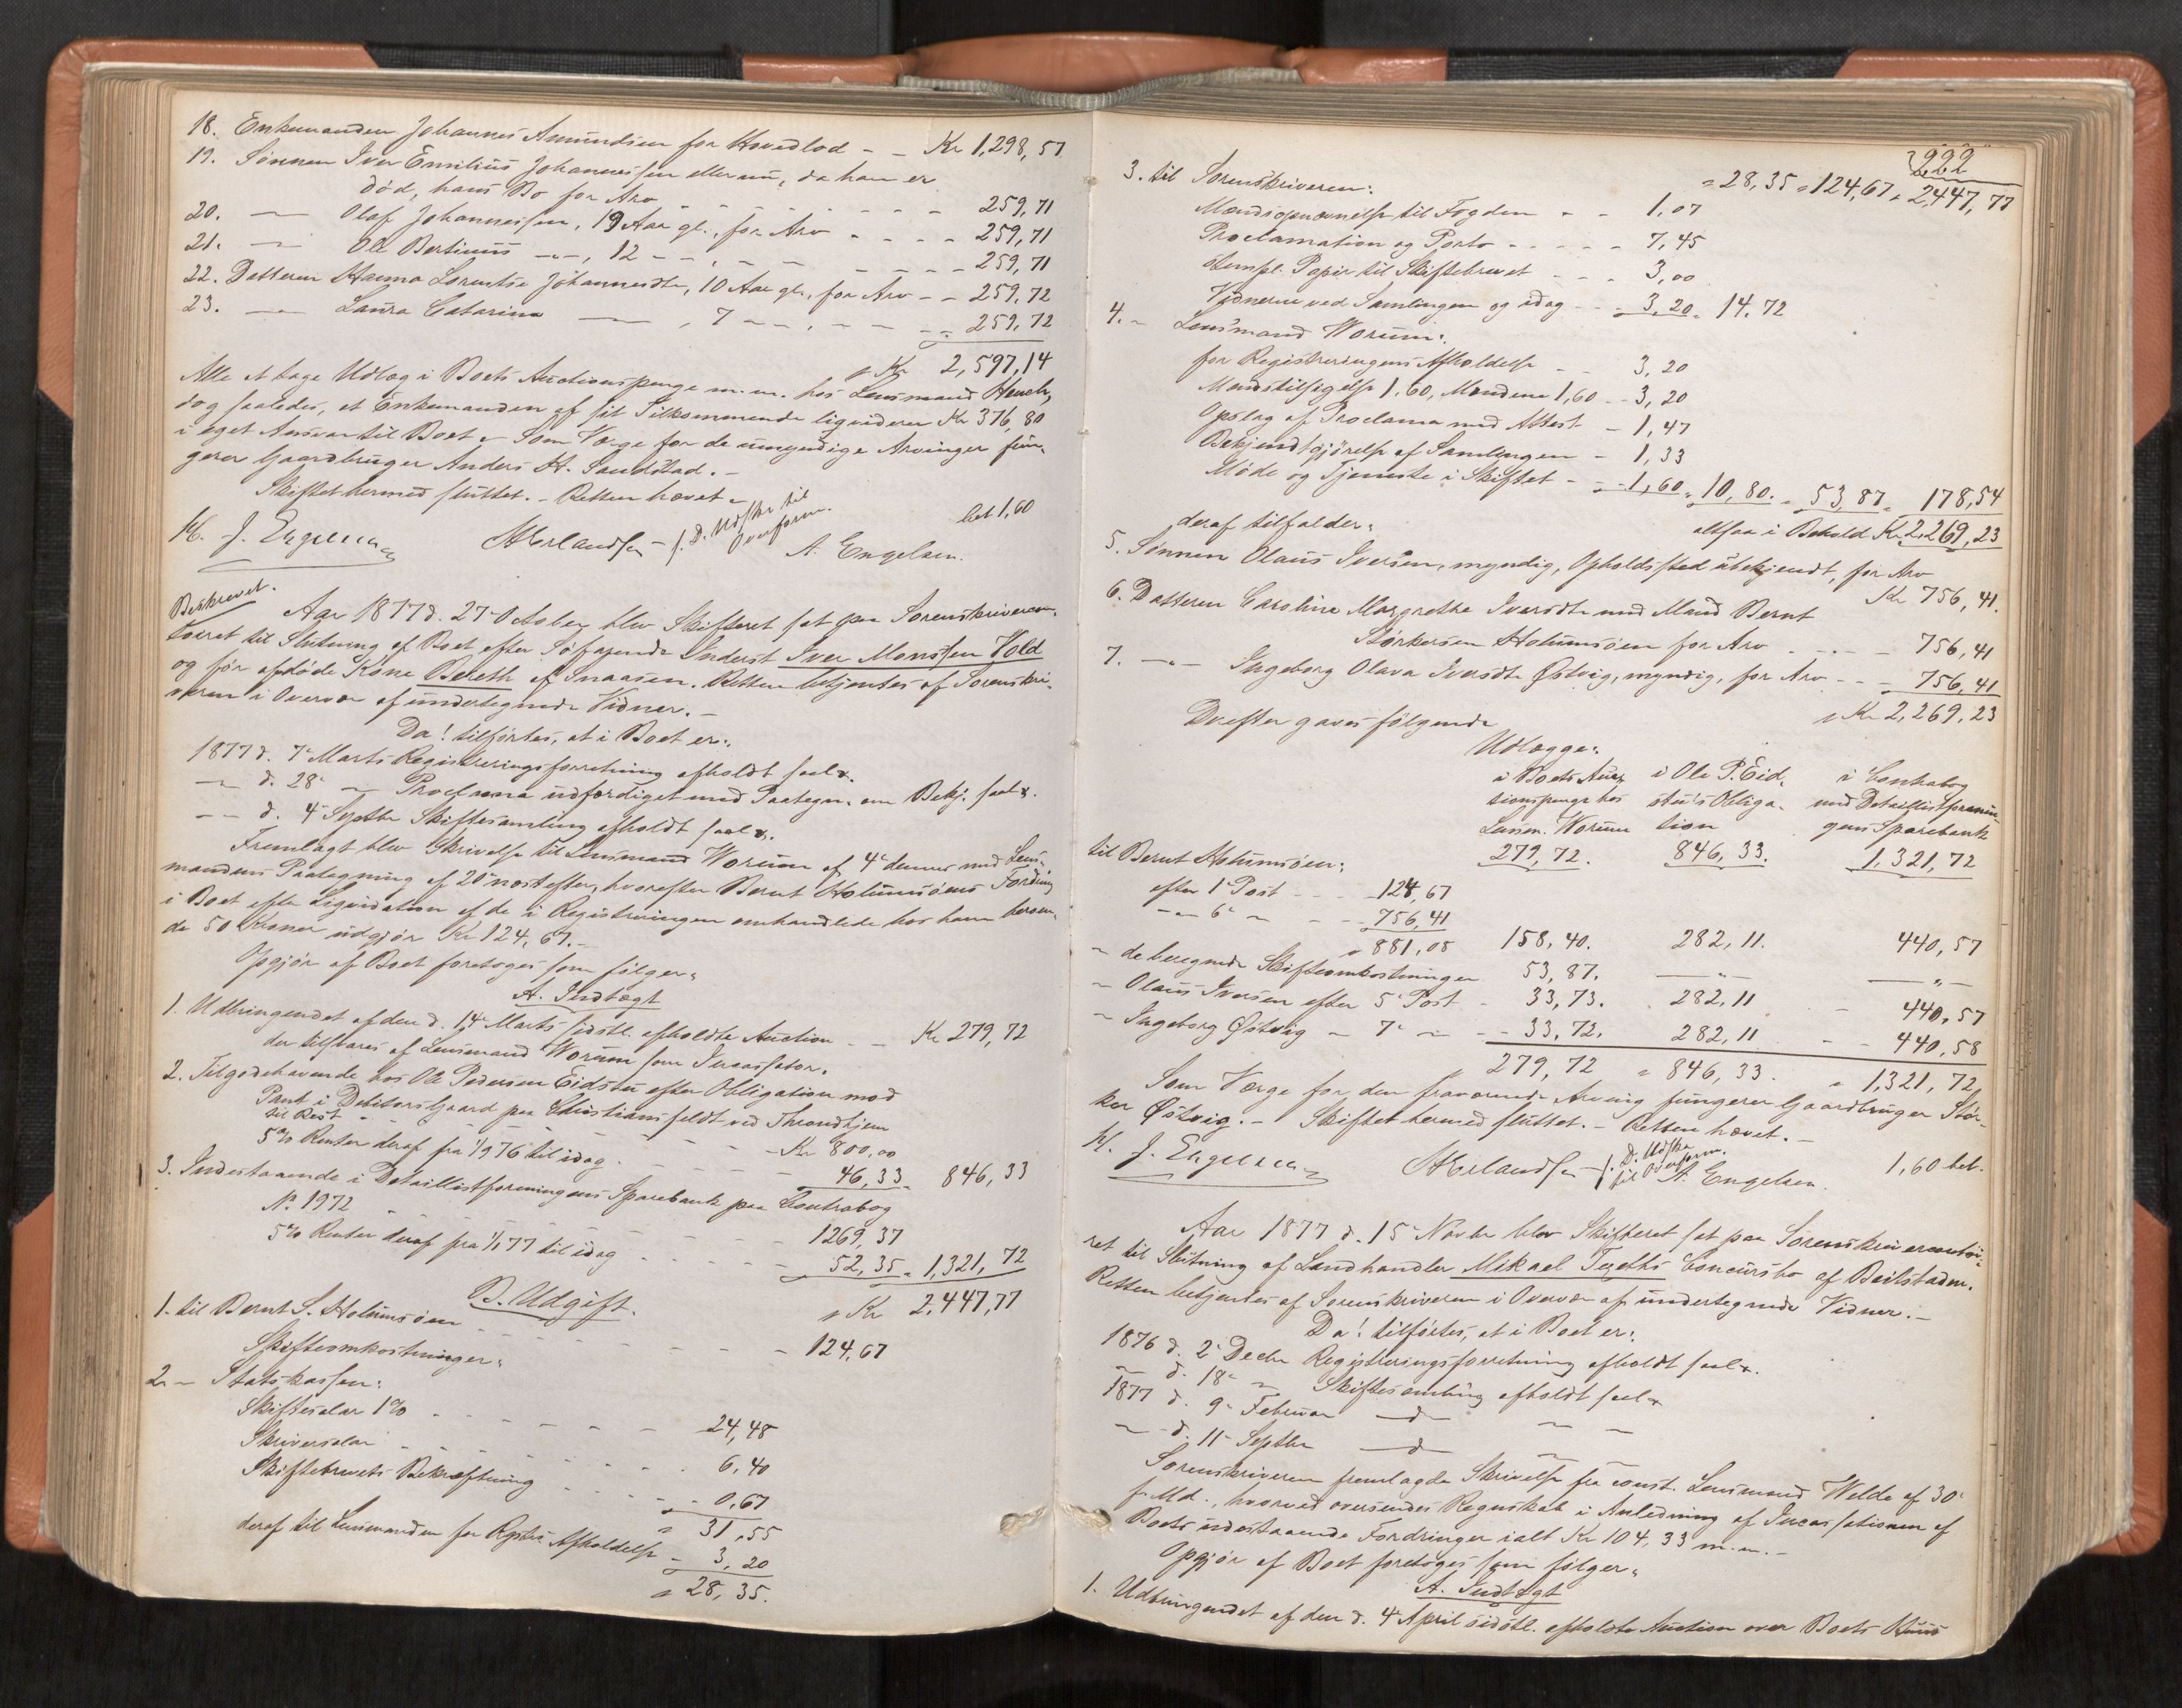 18. Enkemanden Johannes Amundsen for Hovedlod - - Kr 1,298,57
19. Sønnen Iver Emilius Johannessen eller nu, da han er
død, hans Bo for Arv - - - - 259,71
20. — Olaf Johannessen, 19 Aar gl., for Arv - - - - 259,71
21. — Ole Bertinus —"—, 12 - - , - - - - - 259,71
22. Datteren Hanna Lorentse Johannesdtr, 10 Aar gl., for Arv - - 259,72
23. — Laura Catarina — , 7 - - , - - - - 259,72
Kr 2,597,14
Alle at tage Udlæg i Boets Auctionspenge m.m. hos Lensmand Hench,
dog saaledes, at Enkemanden af sit Tilkommende liqviderer Kr 376,80
i eget Ansvar til Boet. Som Værge for de umyndige Arvinger fun-
gerer Gaardbruger Anders H. Sandstad. -
Skiftet hermed sluttet. - Retten hævet -
bet 1,60
M. J. Engelsen StErlandsen - f. D. Udskr til Overform. A. Engelsen.
Beskrevet.
Aar 1877 d. 27 October blev Skifteret sat paa Sorenskrivercon-
toret til Slutning af Boet efter Selveiende Inderst Iver Monssen Vold
og før afdøde Kone Bereth af Snaasen. Retten betjentes af Sorenskri-
veren i Overvær af undertegnede Vidner. -
Da! tilførtes, at i Boet er:
1877 d. 7 Marts Registreringsforretning afholdt saal.
— d. 28 — Proclama udfærdiget med Paategn. om Bekj. saal.
— d. 4 Septbr Skiftesamling afholdt saal.
Fremlagt blev Skrivelse til Lensmand Worum af 4 dennes med Lens-
mandens Paategning af 20 næstefter, hvorefter Bernt Holumsøens Fordring
i Boet efter Liqvidation af de i Registreringen omhandlede, hos ham beroen-
de 50 Kroner udgjør Kr 124,67. -
Opgjør af Boet foretoges som følger:
A. Indtægt
1. Udbringendet af den d. 14 Marts sidstl. afholdte Auction - - Kr 279,72
der tilsvares af Lensmand Worum som Incassator.
2. Tilgodehavende hos Ole Pedersen Eidstu efter Obligation mod
Pant i Debitors Gaard paa Christiansfeldt ved Throndhjem
til Rest - - - - Kr 800,00
5% Renter deraf fra 1/9 76 til idag - - - 46,33 846,33
3. Indestaaende i Detaillistforeningens Sparebank paa Contrabog
No 1972 - - - - 1269,37
5% Renter deraf fra 1/1 77 til idag - - - 52,35 1,321,72
Kr 2,447,77
B. Udgift.
1. til Bernt S. Holumsøen - - - - 124,67
Skifteomkostninger:
2. — Statskassen:
Skiftesalar 1% - - - - 24,48
Skriversalar - - - - 6,40
Skiftebrevets Bekræftning - - - - 0,67
31,55
deraf til Lensmanden for Registr. Afholdelse - 3,20
28,35.
222
28,35 124,67 2,447,77
3. til Sorenskriveren:
Mandsopnævnelse til Fogden - - 1,07
Proclamation og Porto - - - - 7,45
stempl. Papir til Skiftebrevet - - - 3,00
Vidnerne ved Samlingen og idag - - 3,20 14,72
4. — Lensmand Worum:
for Registreringens Afholdelse - - 3,20
Mandstilsigelse 1,60, Mændene 1,60 - 3,20
Opslag af Proclama med Attest - 1,47
Bekjendtgjørelse af Samlingen - 1,33
Møde og Tjeneste i Skiftet - - 1,60 10,80. 53,87 178,54
altsaa i Behold Kr 2,269,23
deraf tilfalder:
5. Sønnen Olaus Iversen, myndig, Opholdssted ubekjendt, for Arv
Kr 756,41.
6. Datteren Caroline Margrethe Iversdtr med Mand Bernt
Størkersen Holumsøen for Arv - - - - 756,41
7. —"— Ingeborg Olava Iversdtr Østvig, myndig, for Arv - - - 756,41
Kr 2,269,23
Derefter gaves følgende
Udlægge:
i Boets Auc- i Ole P. Eid- i Contrabog
tionspenge hos stu's Obliga- med Detaillistforenin-
Lensm. Worum tion gens Sparebank
279,72. 846,33. 1,321,72
til Bernt Holumsøen:
efter 1 Post - - - 124,67
—"— 6 — - - - 756,41
881,08 158,40. 282,11. 440,57
— de beregnede Skifteomkostninger 53,87. —"— —"—
— Olaus Iversen efter 5 Post - 33,73. 282,11 - 440,57
— Ingeborg Østvig — 7 — - - 33,72. 282,11 - - 440,58
279,72 846,33. 1,321,72
Som Værge for den fraværende Arving fungerer Gaardbruger Stør-
ker Østvig. - Skiftet hermed sluttet. - Retten hævet. -
1,60 bet.
M. J. Engelsen StErlandsen - f. D. Udskr til Overform. A. Engelsen.
Aar 1877 d. 15 Novbr blev Skifteret sat paa Sorenskrivercontoi-
ret til Slutning af Landhandler Mikael Texeths Concursbo af Beitstaden.
Retten betjentes af Sorenskriveren i Overvær af undertegnede Vidner. -
Da! tilførtes, at i Boet er:
1876 d. 2 Decbr Registreringsforretning afholdt saal.
— d. 18 — Skiftesamling afholdt saal.
1877 d. 9 Februar — d — — —
— d. 11 Septbr — d — — —
Sorenskriveren fremlagde Skrivelse fra const. Lensmand Welde af 30
f. Md., hvorved oversendes Regnskab i Anledning af Incassationen af
Boets udestaaende Fordringer ialt Kr 104,33 m.m. -
Opgjør af Boet foretoges som følger:
A. Indtægt
1. Udbringendet af den d. 4 April sidstl. afholdte Auction over Boets Huus